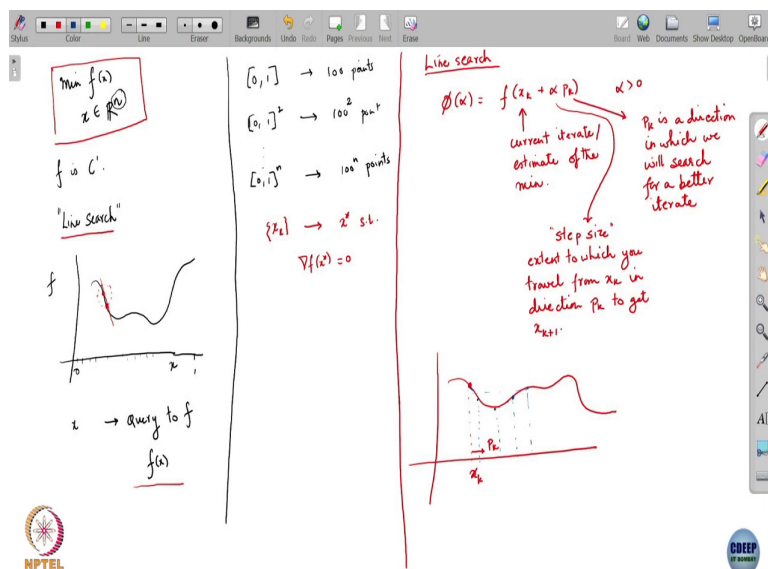 Stylus
Color
Line
Eraser
Backgrounds
Undo
Redo
Pages
Previous
Next
Erase
Board
Web
Documents
Show Desktop
OpenBoard
min f(x)
x ∈ ℝⁿ
f is C¹.
"Line search"
f
0
x
1
x → Query to f
f(x)
[0,1] → 100 points
[0,1]² → 100² point
⋮
[0,1]ⁿ → 100ⁿ points
{x_k} → x* s.t.
∇f(x*) = 0
Line search
φ(α) = f(x_k + α p_k) α>0
current iterate/
estimate of the
min.
p_k is a direction
in which we
will search
for a better
iterate
"step size"
extent to which you
travel from x_k in
direction p_k to get
x_{k+1}.
p_k
x_k
NPTEL
CDEEP
IIT BOMBAY